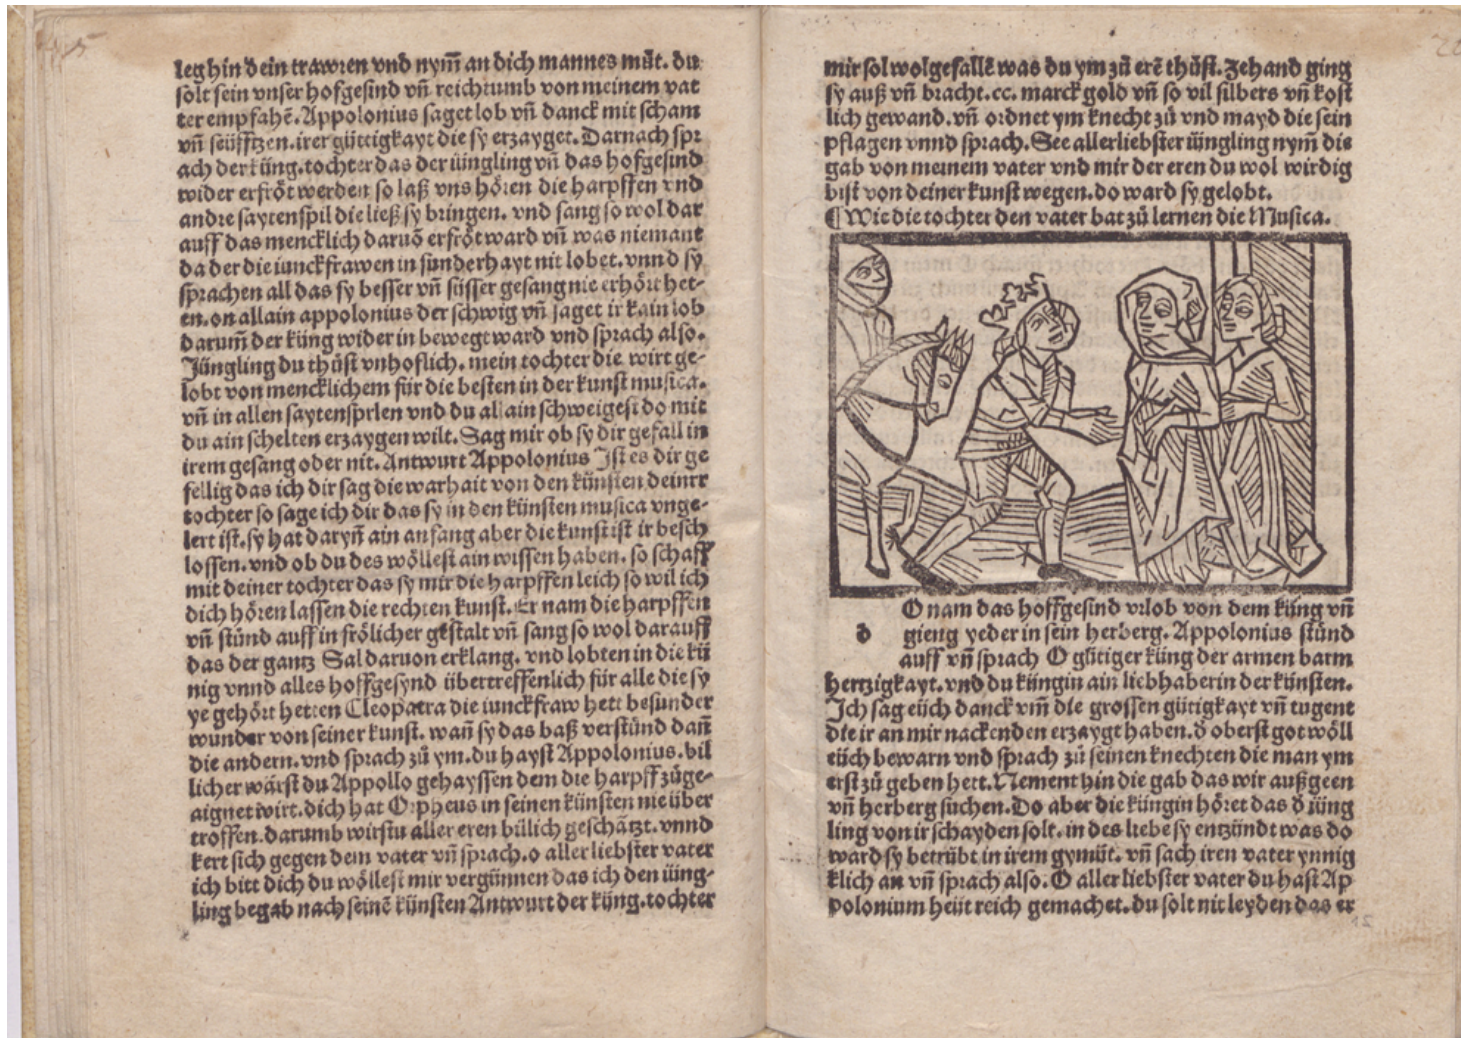 leg hin dein trawren vnd nym̄ an dich mannes můt. du
solt sein vnser hofgesind vn̄ reichtumb von meinem vat
ter empfahē. Appolonius saget lob vn̄ danck mit scham
vn̄ seüfftzen. irer gůttigkayt die sy erzayget. Darnach spr
ach der küng. tochter das der üngling vn̄ das hofgesind
wider erfröt werden so laß vns hören die harpffen vnd
andre saytenspil die ließ sy bringen. vnd sang so wol dar
auff das mencklich daruō erfröt ward vn̄ was niemant
da der die iunckfrawen in sunderhayt nit lobet. vnnd sy
sprachen all das sy besser vn̄ süsser gesang nie erhört het-
en. on allain appolonius der schwig vn̄ saget ir kain lob
darum̄ der küng wider in bewegt ward vnd sprach also.
Jüngling du thůst vnhoflich. mein tochter die wirt ge-
lobt von mencklichem für die besten in der kunst musica.
vn̄ in allen saytensprlen vnd du allain schweigest do mit
du ain schelten erzaygen wilt. Sag mir ob sy dir gefall in
irem gesang oder nit. Antwurt Appolonius Ist es dir ge
fellig das ich dir sag die warhait von den künsten deinrr
tochter so sage ich dir das sy in den künsten musica vnge-
lert ist. sy hat daryn̄ ain anfang aber die kunst ist ir besch
lossen. vnd ob du des wöllest ain wissen haben. so schaff
mit deiner tochter das sy mir die harpffen leich so wil ich
dich hören lassen die rechten kunst. Er nam die harpffen
vn̄ stůnd auff in frölicher gestalt vn̄ sang so wol darauff
das der gantz Sal daruon erklang. vnd lobten in die kü
nig vnnd alles hoffgesynd übertreffenlich für alle die sy
ye gehört hetten Cleopatra die iunckfraw hett besunder
wunder von seiner kunst. wan̄ sy das baß verstůnd dan̄
die andern. vnd sprach zů ym. du hayst Appolonius. bil
licher wärst du Appollo gehayssen dem die harpff zůge-
aignet wirt. dich hat Orpheus in seinen künsten nie über
troffen. darumb wirstu aller eren bülich geschätzt. vnnd
kert sich gegen dem vater vn̄ sprach. o aller liebster vater
ich bitt dich du wöllest mir vergünnen das ich den üing-
ling begab nach seinē künsten Antwurt der küng. tochter
mir sol wolgefallē was du ym zů erē thůst. Zehand ging
sy auß vn̄ bracht. cc. marck gold vn̄ so vil silbers vn̄ kost
lich gewand. vn̄ ordnet ym knecht zů vnd mayd die sein
pflagen vnnd sprach. See allerliebster üngling nym̄ die
gab von meinem vater vnd mir der eren du wol wirdig
bist von deiner kunst wegen. do ward sy gelobt.
¶ Wie die tochter den vater bat zů lernen die Musica.
d O nam das hoffgesind vrlob von dem küng vn̄
gieng yeder in sein herberg. Appolonius stůnd
auff vn̄ sprach O gůtiger küng der armen barm
hertzigkayt. vnd du küngin ain liebhaberin der künsten.
Ich sag eüch danck vm̄ die grossen gůtigkayt vn̄ tugent
die ir an mir nackenden erzaygt haben. d̄ oberst got wöll
eüch bewarn vnd sprach zů seinen knechten die man ym
erst zů geben hett. Nement hin die gab das wir außgeen
vn̄ herberg sůchen. Do aber die küngin höret das d̄ iüng
ling von ir schayden solt. in des liebe sy entzündt was do
ward sy betrůbt in irem gymůt. vn̄ sach iren vater ynnig
klich an vn̄ sprach also. O aller liebster vater du hast Ap
polonium heüt reich gemachet. du solt nit leyden das er